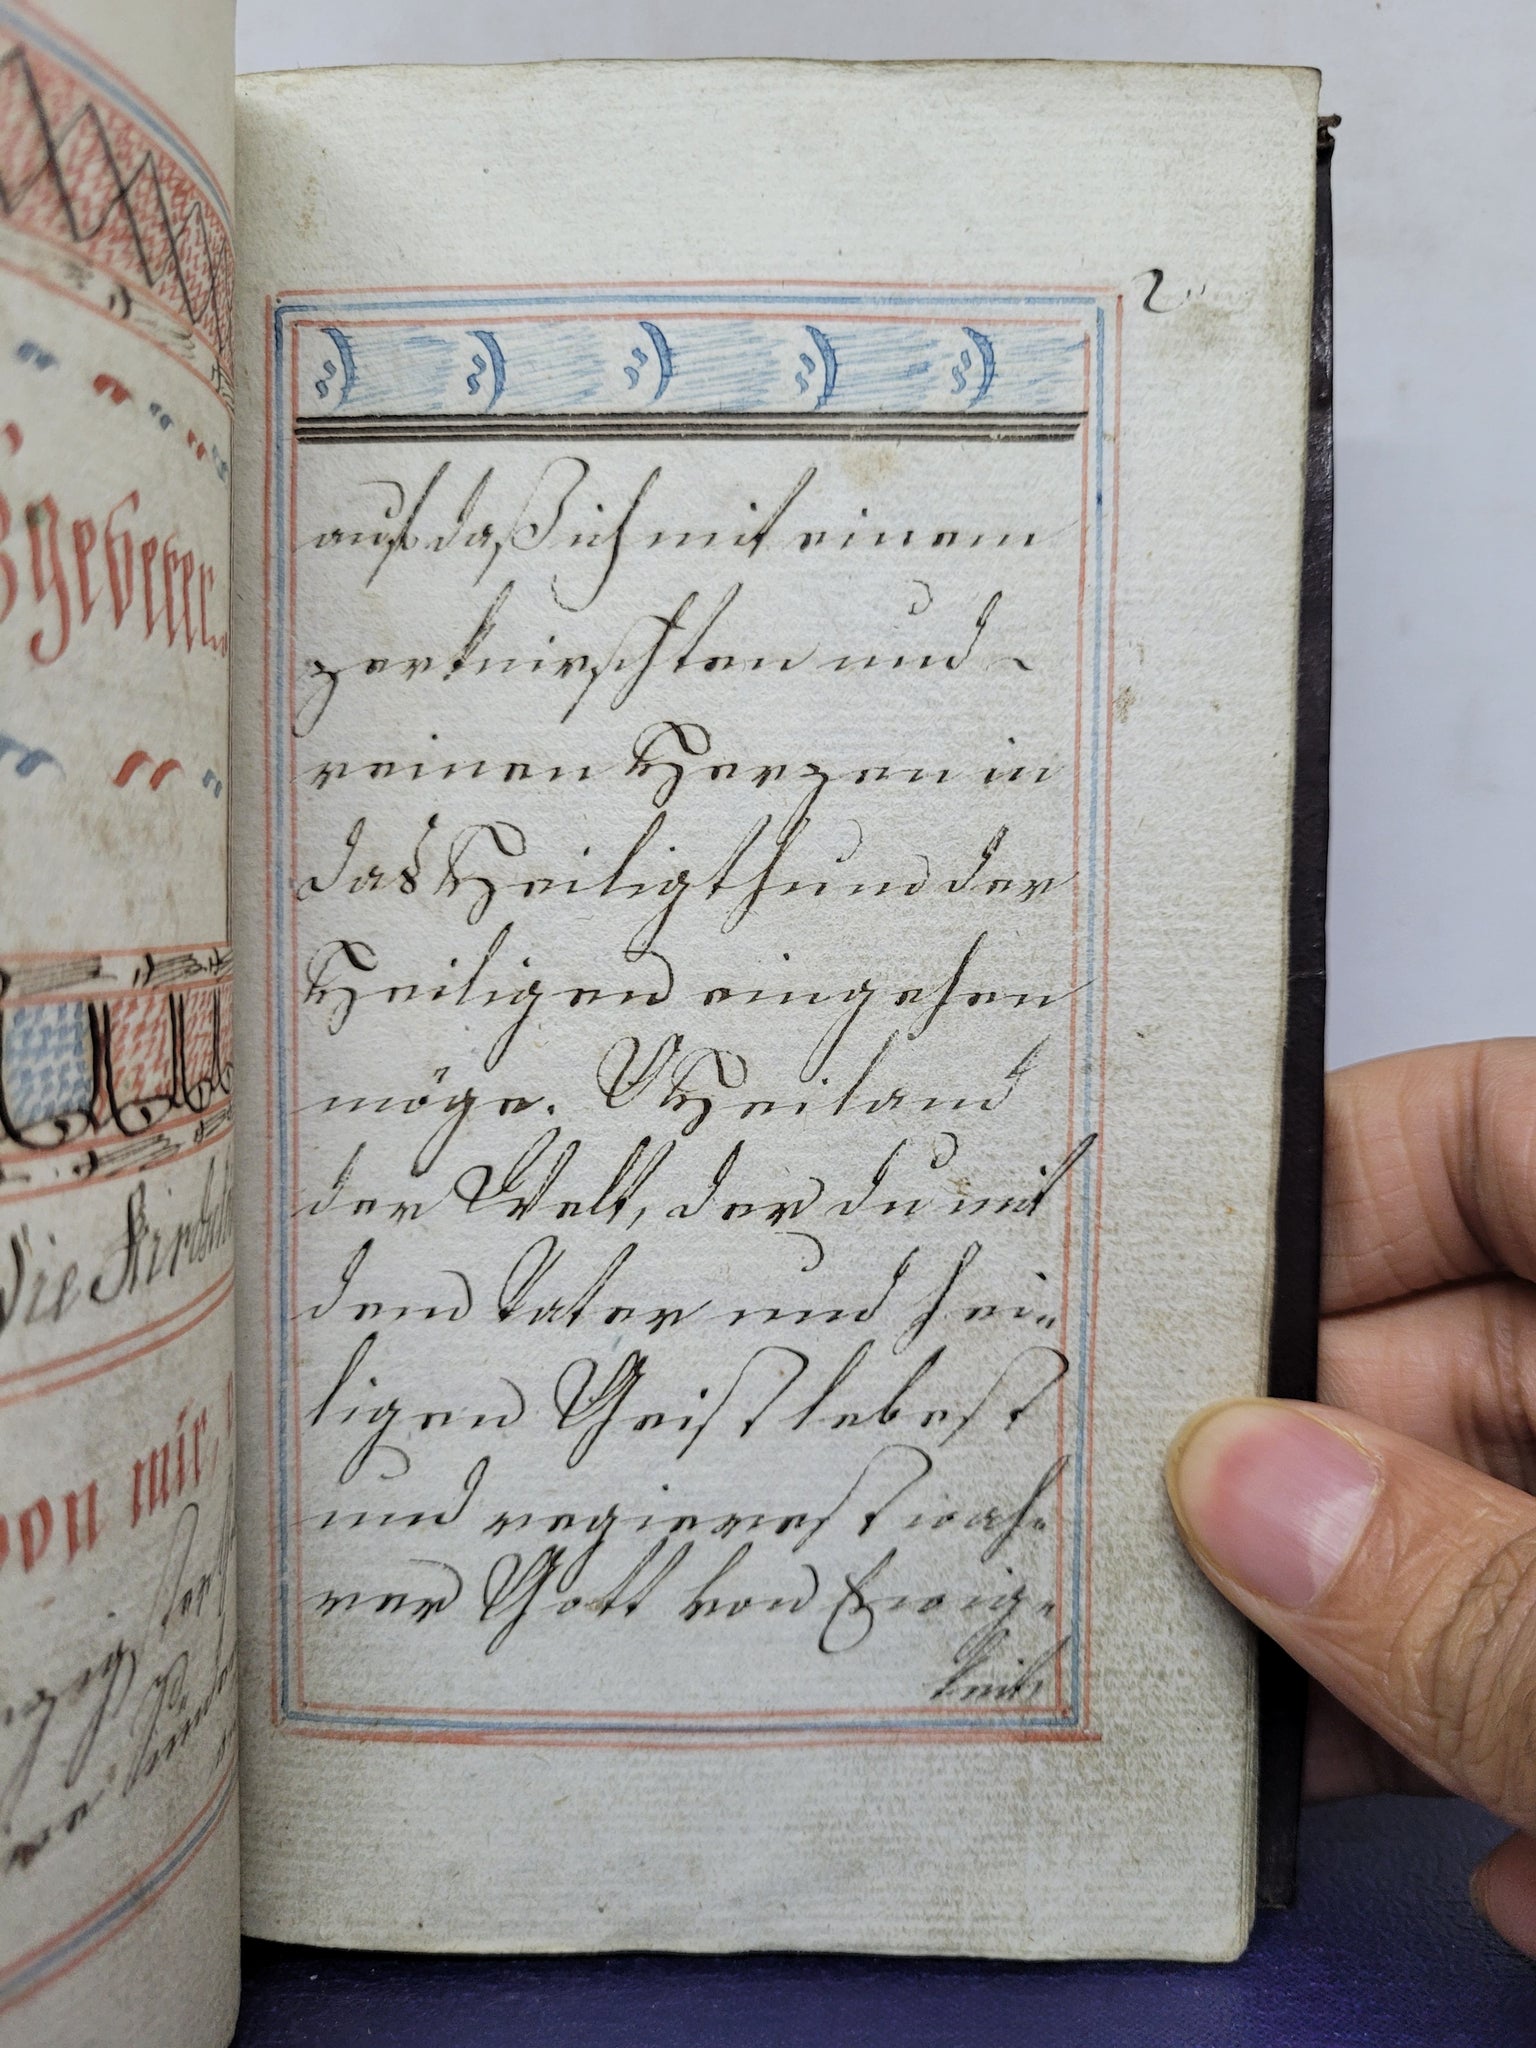 2.
auf daß ich mit einem
zerknirschten und
reinen Herzen in
das Heiligthum der
Heiligen eingehen
möge. O Heiland
der Welt, der du mit
dem Vater und hei-
ligen Geist lebest
und regierest wah-
rer Gott von Ewig-
keit
von mir,